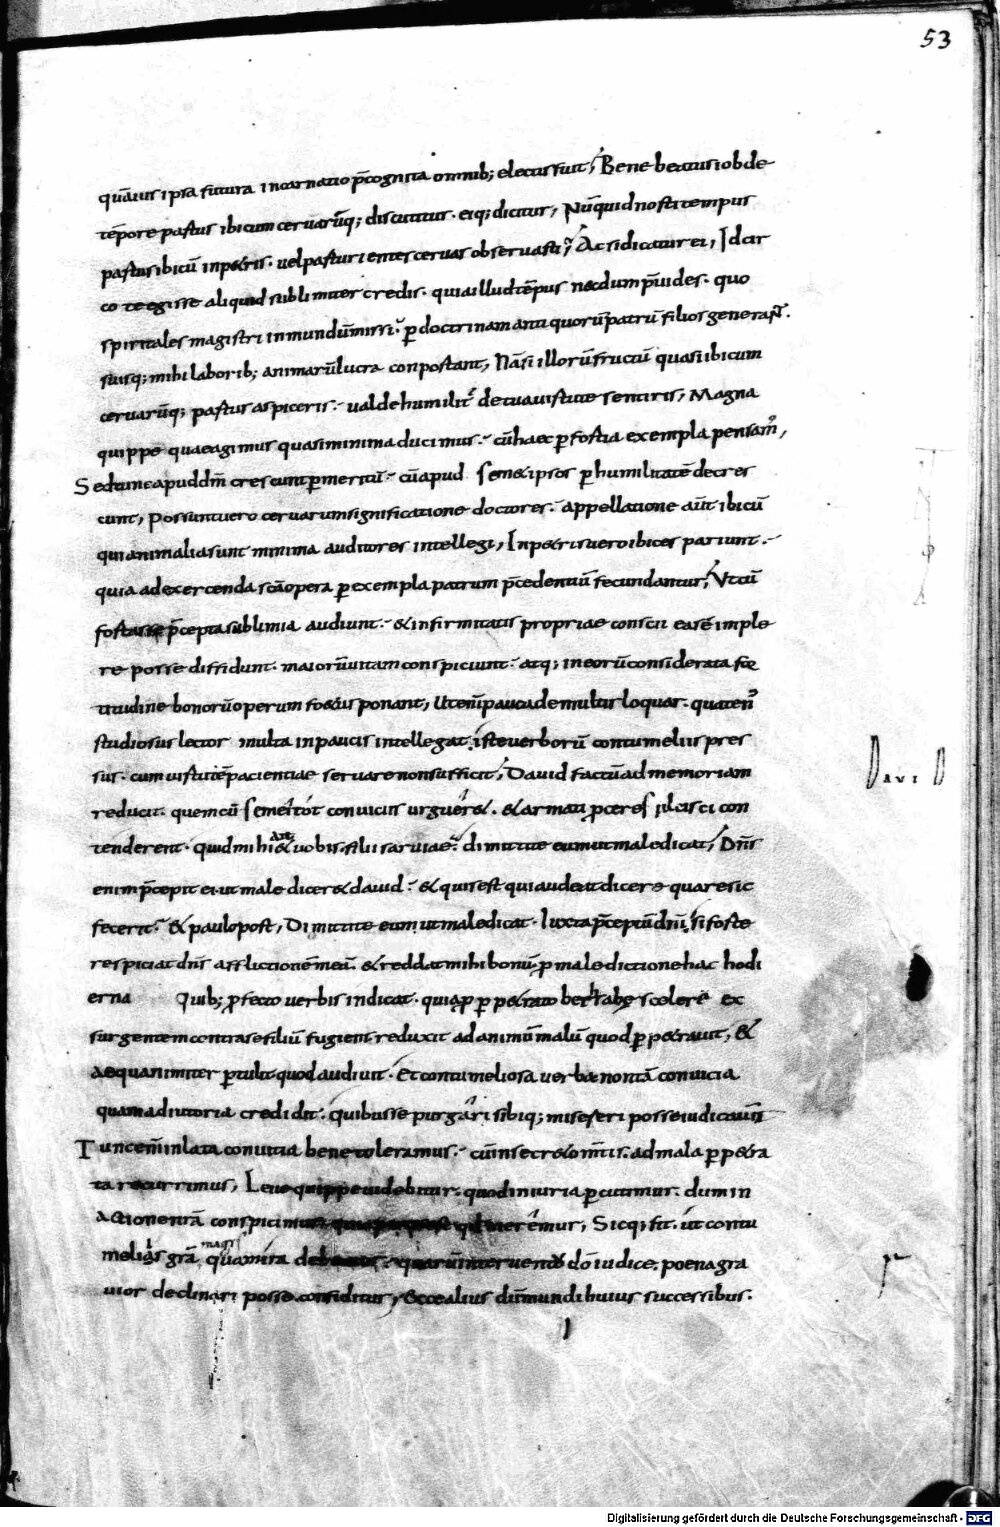 53
quā ius ipsa futura incarnatio p̄cognita omnib; electis fuit; Bene beatus iob de
tēpore partus ibicum cervarūq; discutitur. eiq; dicitur, Nūquid nosti tempus
partus ibicū in petris. vel parturientes cervas observasti; Ac si dicatur ei, Idcir
co te egisse aliquid sublimiter credis. quia illud tēpus necdum p̄vides. quo
spiritales magistri in mundū missi. per doctrinam antiquorū patrū filios generant.
suisq; mihi laborib; animarū lucra conportant, Nā si illorū fructū quasi ibicum
cervarūq; partus aspiceris. valde humilit̄ de tua virtute sentiris, Magna
quippe quae agimus quasi minima ducimus. cū haec p fortia exempla pensam̄,
Sed tunc apud dm̄ crescunt p meritū. cū apud semet ipsos p humilitatē decres
cunt, Possunt vero cervarum significatione doctores. appellatione aūt ibicū
qui animalia sunt minima auditores intellegi, In petris vero ibices pariunt.
quia ad exercenda scā opera p exempla patrum p̄cedentiū fecundantur, Ut cū
fortasse p̄cepta sublimia audiunt. & infirmitatis propriae conscii ea sē imple
re posse diffidunt. maiorū vitam conspiciunt. atq; in eorū considerata for
titudine bonorū operum foetus ponant, Ut enī pauca de multis loquar. quaten̄
studiosus lector multa in paucis intellegat. iste verborū contumeliis pres
sus. cum virtutē pacientiae servare non sufficit, David factū ad memoriam
reducit. quem cū semei tot conviciis urgueret. & armati proceres ulcisci con
tenderent. Quid mihi & vobis filii sarviae. dimittite eum ut maledicat, Dn̄s
enim p̄cepit ei ut malediceret david. & quis est qui audeat dicere quare sic
fecerit. & paulo post, Dimittite eum ut maledicat. Iuxta p̄ceptū dn̄i si forte
respiciat dn̄s afflictionē meā. & reddat mihi bonū p maledictione hac hodi
erna Quib; profecto verbis indicat. quia p ppetrato bethsabę scelere ex
surgentem contra se filiū fugiens reduxit ad animū malū quod p petravit, &
aequanimiter ptulit quod audivit. Et contumeliosa verba non tā convicia
quam adiutoria credidit. quibus se purgari sibiq; misereri posse iudicavit
Tunc enī inlata convitia bene toleramus. cū in secreto mtis. ad mala ppetra
ta recurrimus, Leve quippe videbitur. quod iniuria pcutimur. dum in
actione nrā conspicimus quia peius est qd meremur, Sicq; fit. ut contu
meliis grā magis quā ira debeatur. quarū interventū dō iudice. poena gra
vior declinari posse considitur, Ecce alius dū mundi huius successibus.
DAVID